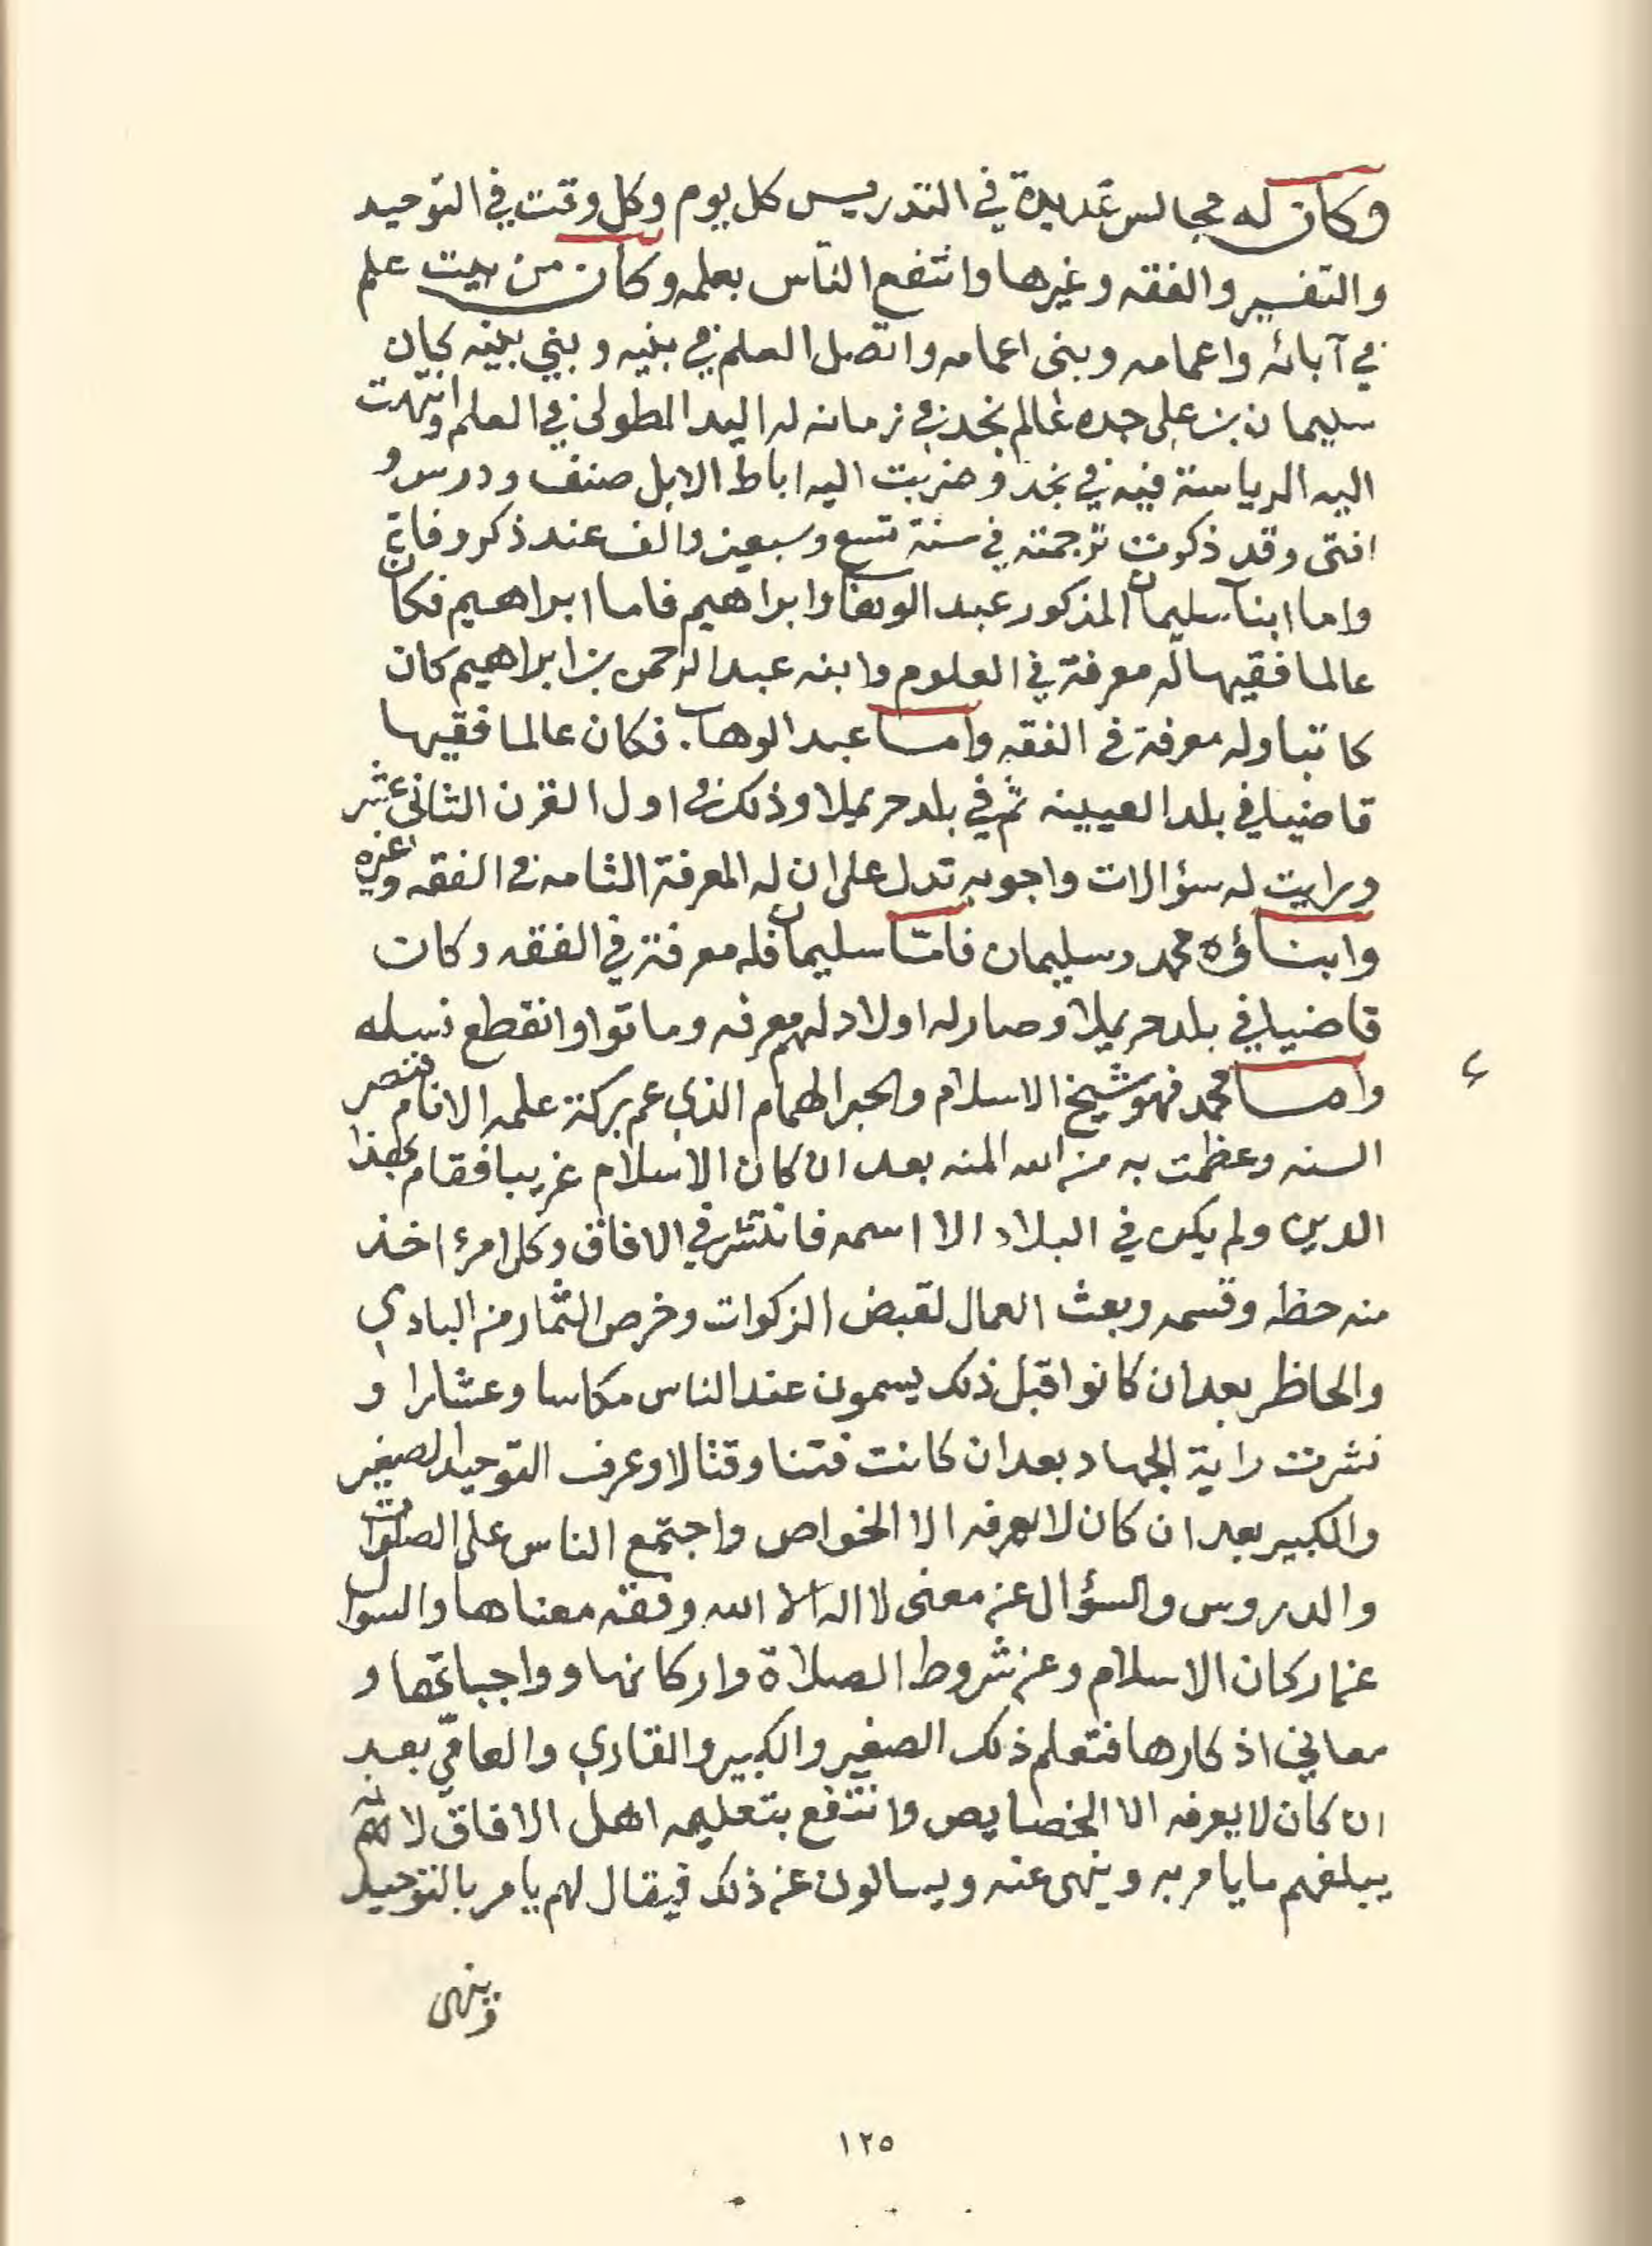 وكان له مجالس عديدة في التدريس كل يوم وكل وقت في التوحيد
والتفسير والفقه وغيرها وانتفع الناس بعلمه وكان من بيت علم
في آبائه واعمامه وبنى اعمامه واتصل العلم في بنيه وبني بنيه كان
سليمان بن علي جده عالم نجد في زمانه له اليد الطولى في العلم وانتهت
اليه الرياسة فيه في نجد وضربت اليه اباط الابل صنف ودرس و
افتى وقد ذكرت ترجمته في سنة تسع وسبعين والف عند ذكر وفاته
واما ابنا سليمان المذكور عبد الوهاب وابراهيم فاما ابراهيم فكان
عالما فقيها له معرفة في العلوم وابنه عبد الرحمن بن ابراهيم كان
كاتبا وله معرفة في الفقه واما عبد الوهاب فكان عالما فقيها
قاضيا في بلد العيينه ثم في بلد حريملا وذلك في اول القرن الثاني عشر
ورايت له سؤالات واجوبه تدل على ان له المعرفة التامه في الفقه وغيره
وابناؤه محمد وسليمان فامّا سليمان فله معرفة في الفقه وكان
قاضيا في بلد حريملا وصار له اولاد لهم معرفه وماتوا وانقطع نسله
واما محمد فهو شيخ الاسلام والحبر الهمام الذي عم بركة علمه الانام فنصر
السنه وعظمت به من الله المنه بعد ان كان الاسلام غريبا فقام بهذا
الدين ولم يكن في البلاد الا اسمه فانتشر في الافاق وكل امرؤ اخذ
منه حظه وقسمه وبعث العمال لقبض الزكوات وخرص الثمار من البادي
والحاظر بعد ان كانوا قبل ذلك يسمون عند الناس مكاسا وعشارا و
نشرت راية الجهاد بعد ان كانت فتنا وقتالا وعرف التوحيد الصغير
والكبير بعد ان كان لا يعرفه الا الخواص واجتمع الناس على الصلوات
والدروس والسؤال عن معنى لا اله الا الله وفقه معناها والسوال
عن اركان الاسلام وعن شروط الصلاة واركانها وواجباتها و
معاني اذكارها فتعلم ذلك الصغير والكبير والقاري والعامّي بعد
ان كان لا يعرفه الا الخصايص وانتفع بتعليمه اهل الافاق لانهم
يبلغهم ما يامر به وينهى عنه ويسالون عن ذلك فيقال لهم يامر بالتوحيد
وينهى
١٢٥